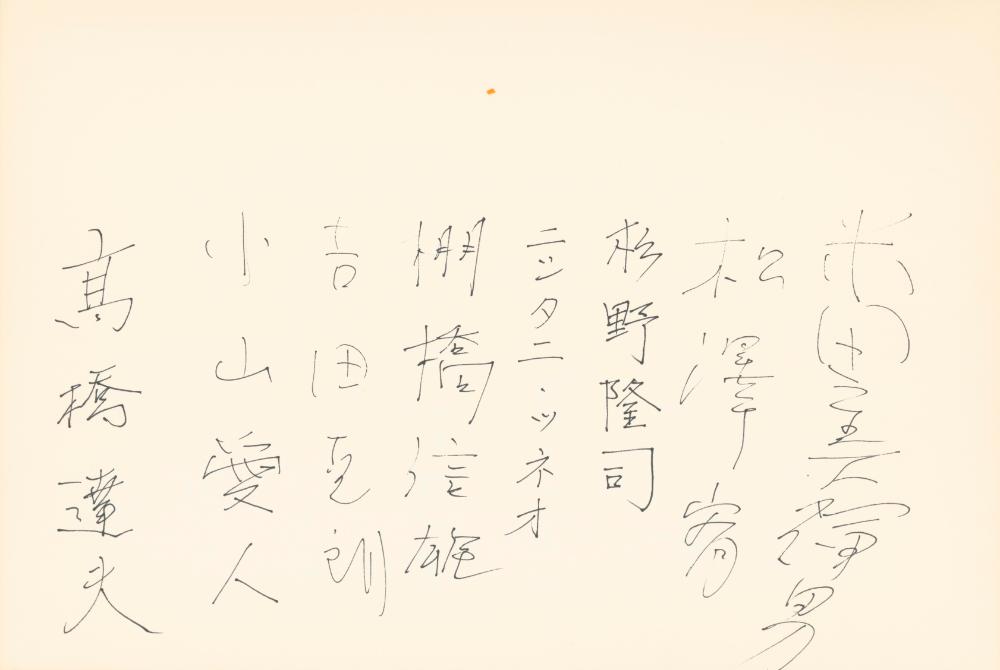 松澤宥
杉野隆司
ニッタニ・ツネオ
棚橋信雄
吉田克朗
小山愛人
高橋達夫